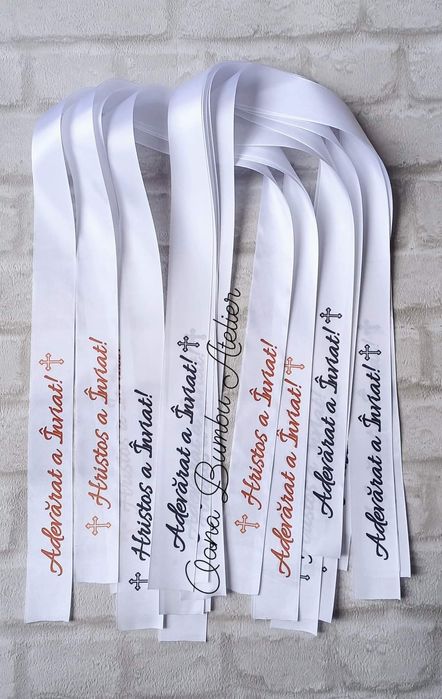 Adevărat a Înviat!
Hristos a Înviat!
Hristos a Înviat!
Adevărat a Înviat!
Oana Bumbu Atelier
Hristos a Înviat!
Adevărat a Înviat!
Adevărat a Înviat!
Adevărat a Înviat!